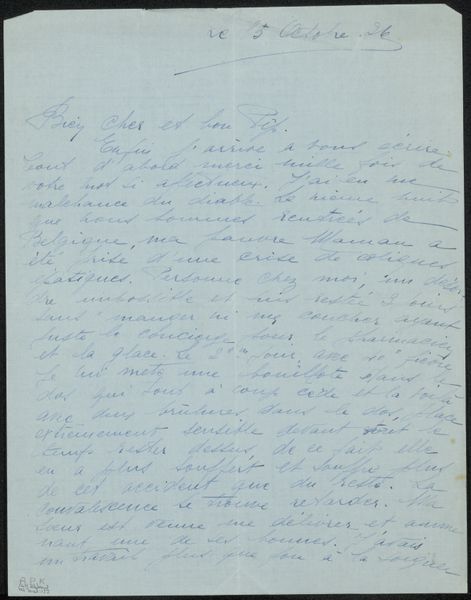 le 15 Octobre. 26
Bien cher et bon Pip.
Enfin j'arrive a vous écrire.
tout d'abord merci mille fois de
votre mot si afectueux. J'ai eu une
malchance du diable. La même nuit
que nous sommes rentrées de
Belgique, ma pauvre Maman a
été prise d'une crise de coliques
épatiques. Personne chez moi, un désor-
dre impossible et suis resté 3 jours
sans manger ni me coucher ayant
juste la concierge pour le pharmacien
et la glace. Le 2eme jour, avec sa fièvre
je lui mets une bouillote dans le
dos qui tout à coup cède et la voilà
avec des brûlures dans le dos, place
extrèmement sensible devant tout le
temps rester dessus, de ce fait elle
en a plus souffert et souffre plus
de cet accident que du reste. La
convalescence se trouve retarder. Ma
sœur est venue me délivrer et amme
nant une de ses bonnes. J'avais
un travail plus que fou à la soigner
B.P.K.